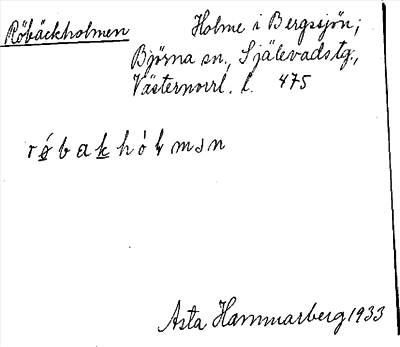 Röbäckholmen Holme i Bergssjön;
Björna sn., Själevads tg.,
Västernorrl. l. 475
Asta Hammarberg 1933